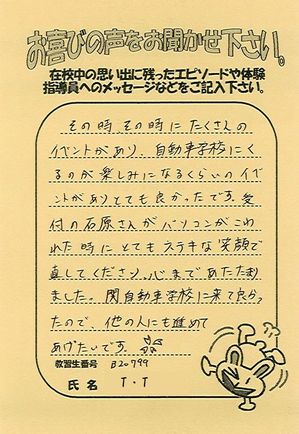 お喜びの声をお聞かせ下さい。
在校中の思い出に残ったエピソードや体験
指導員へのメッセージなどをご記入下さい。
その時その時にたくさんの
イベントがあり、自動車学校にく
るのが楽しみになるくらいのイベ
ントがありとても良かったです。受
付の石原さんがパソコンがこわ
れた時にとてもステキな笑顔で
直してくださり、心まであたたまり
ました。関自動車学校に来て良かっ
たので、他の人にも進めて
あげたいです。
教習生番号 B20799
氏名 T・T